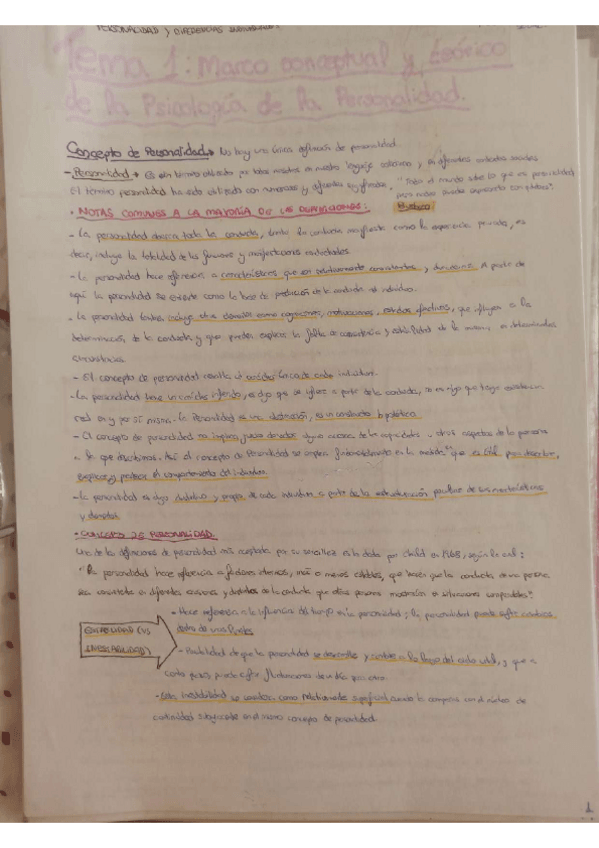 PERSONALIDAD Y DIFERENCIAS
Tema 1: Marco conceptual y teórico
de la Psicología de la Personalidad.
Concepto de Personalidad → No hay una única definición de personalidad.
- Personalidad → Es un término utilizado por todos nosotros en nuestro lenguaje cotidiano y en diferentes contextos sociales
El término personalidad ha sido utilizado con numerosos y diferentes significados, "Todo el mundo sabe lo que es personalidad,
pero nadie puede expresarlo con palabras".
• NOTAS COMUNES A LA MAYORÍA DE LAS DEFINICIONES:
- La personalidad abarca toda la conducta, tanto la conducta manifiesta como la experiencia privada, es
decir, incluye la totalidad de las funciones y manifestaciones conductuales
- La personalidad hace referencia a características que son relativamente consistentes y duraderas. A partir de
aquí la personalidad se entiende como la base de predicción de la conducta del individuo.
- La personalidad también incluye otros elementos como cogniciones, motivaciones, estados afectivos, que influyen en la
determinación de la conducta, y que pueden explicar la falta de consistencia y estabilidad de la misma, en determinadas
circunstancias.
- El concepto de personalidad resalta el carácter único de cada individuo.
- La personalidad tiene un carácter inferido, es algo que se infiere a partir de la conducta, no es algo que tenga existencia
real en y por sí misma. La Personalidad es una abstracción, es un constructo hipotético.
- El concepto de personalidad no implica juicio de valor alguno acerca de las capacidades u otros aspectos de la persona
que describimos. Así el concepto de Personalidad se emplea fundamentalmente en la medida que es útil para describir,
explicar y predecir el comportamiento del individuo
- La personalidad es algo distintivo y propio de cada individuo a partir de la estructuración peculiar de sus características
y elementos
• CONCEPTO DE PERSONALIDAD
Una de las definiciones de personalidad más aceptada por su sencillez es la dada por Child en 1968, según la cual:
"La personalidad hace referencia a factores internos, más o menos estables, que hacen que la conducta de una persona
sea consistente en diferentes ocasiones y distinta de la conducta que otras personas mostrarían en situaciones comparables".
ESTABILIDAD (VS
INESTABILIDAD)
- Hace referencia a la influencia del tiempo en la personalidad; la personalidad puede sufrir cambios
dentro de unos límites
- Posibilidad de que la personalidad se desarrolle y cambie a lo largo del ciclo vital, y que a
corto plazo, puede sufrir fluctuaciones de un día para otro.
- Esta inestabilidad se considera como relativamente superficial cuando la compara con el núcleo de
continuidad subyacente en el mismo concepto de personalidad.
1